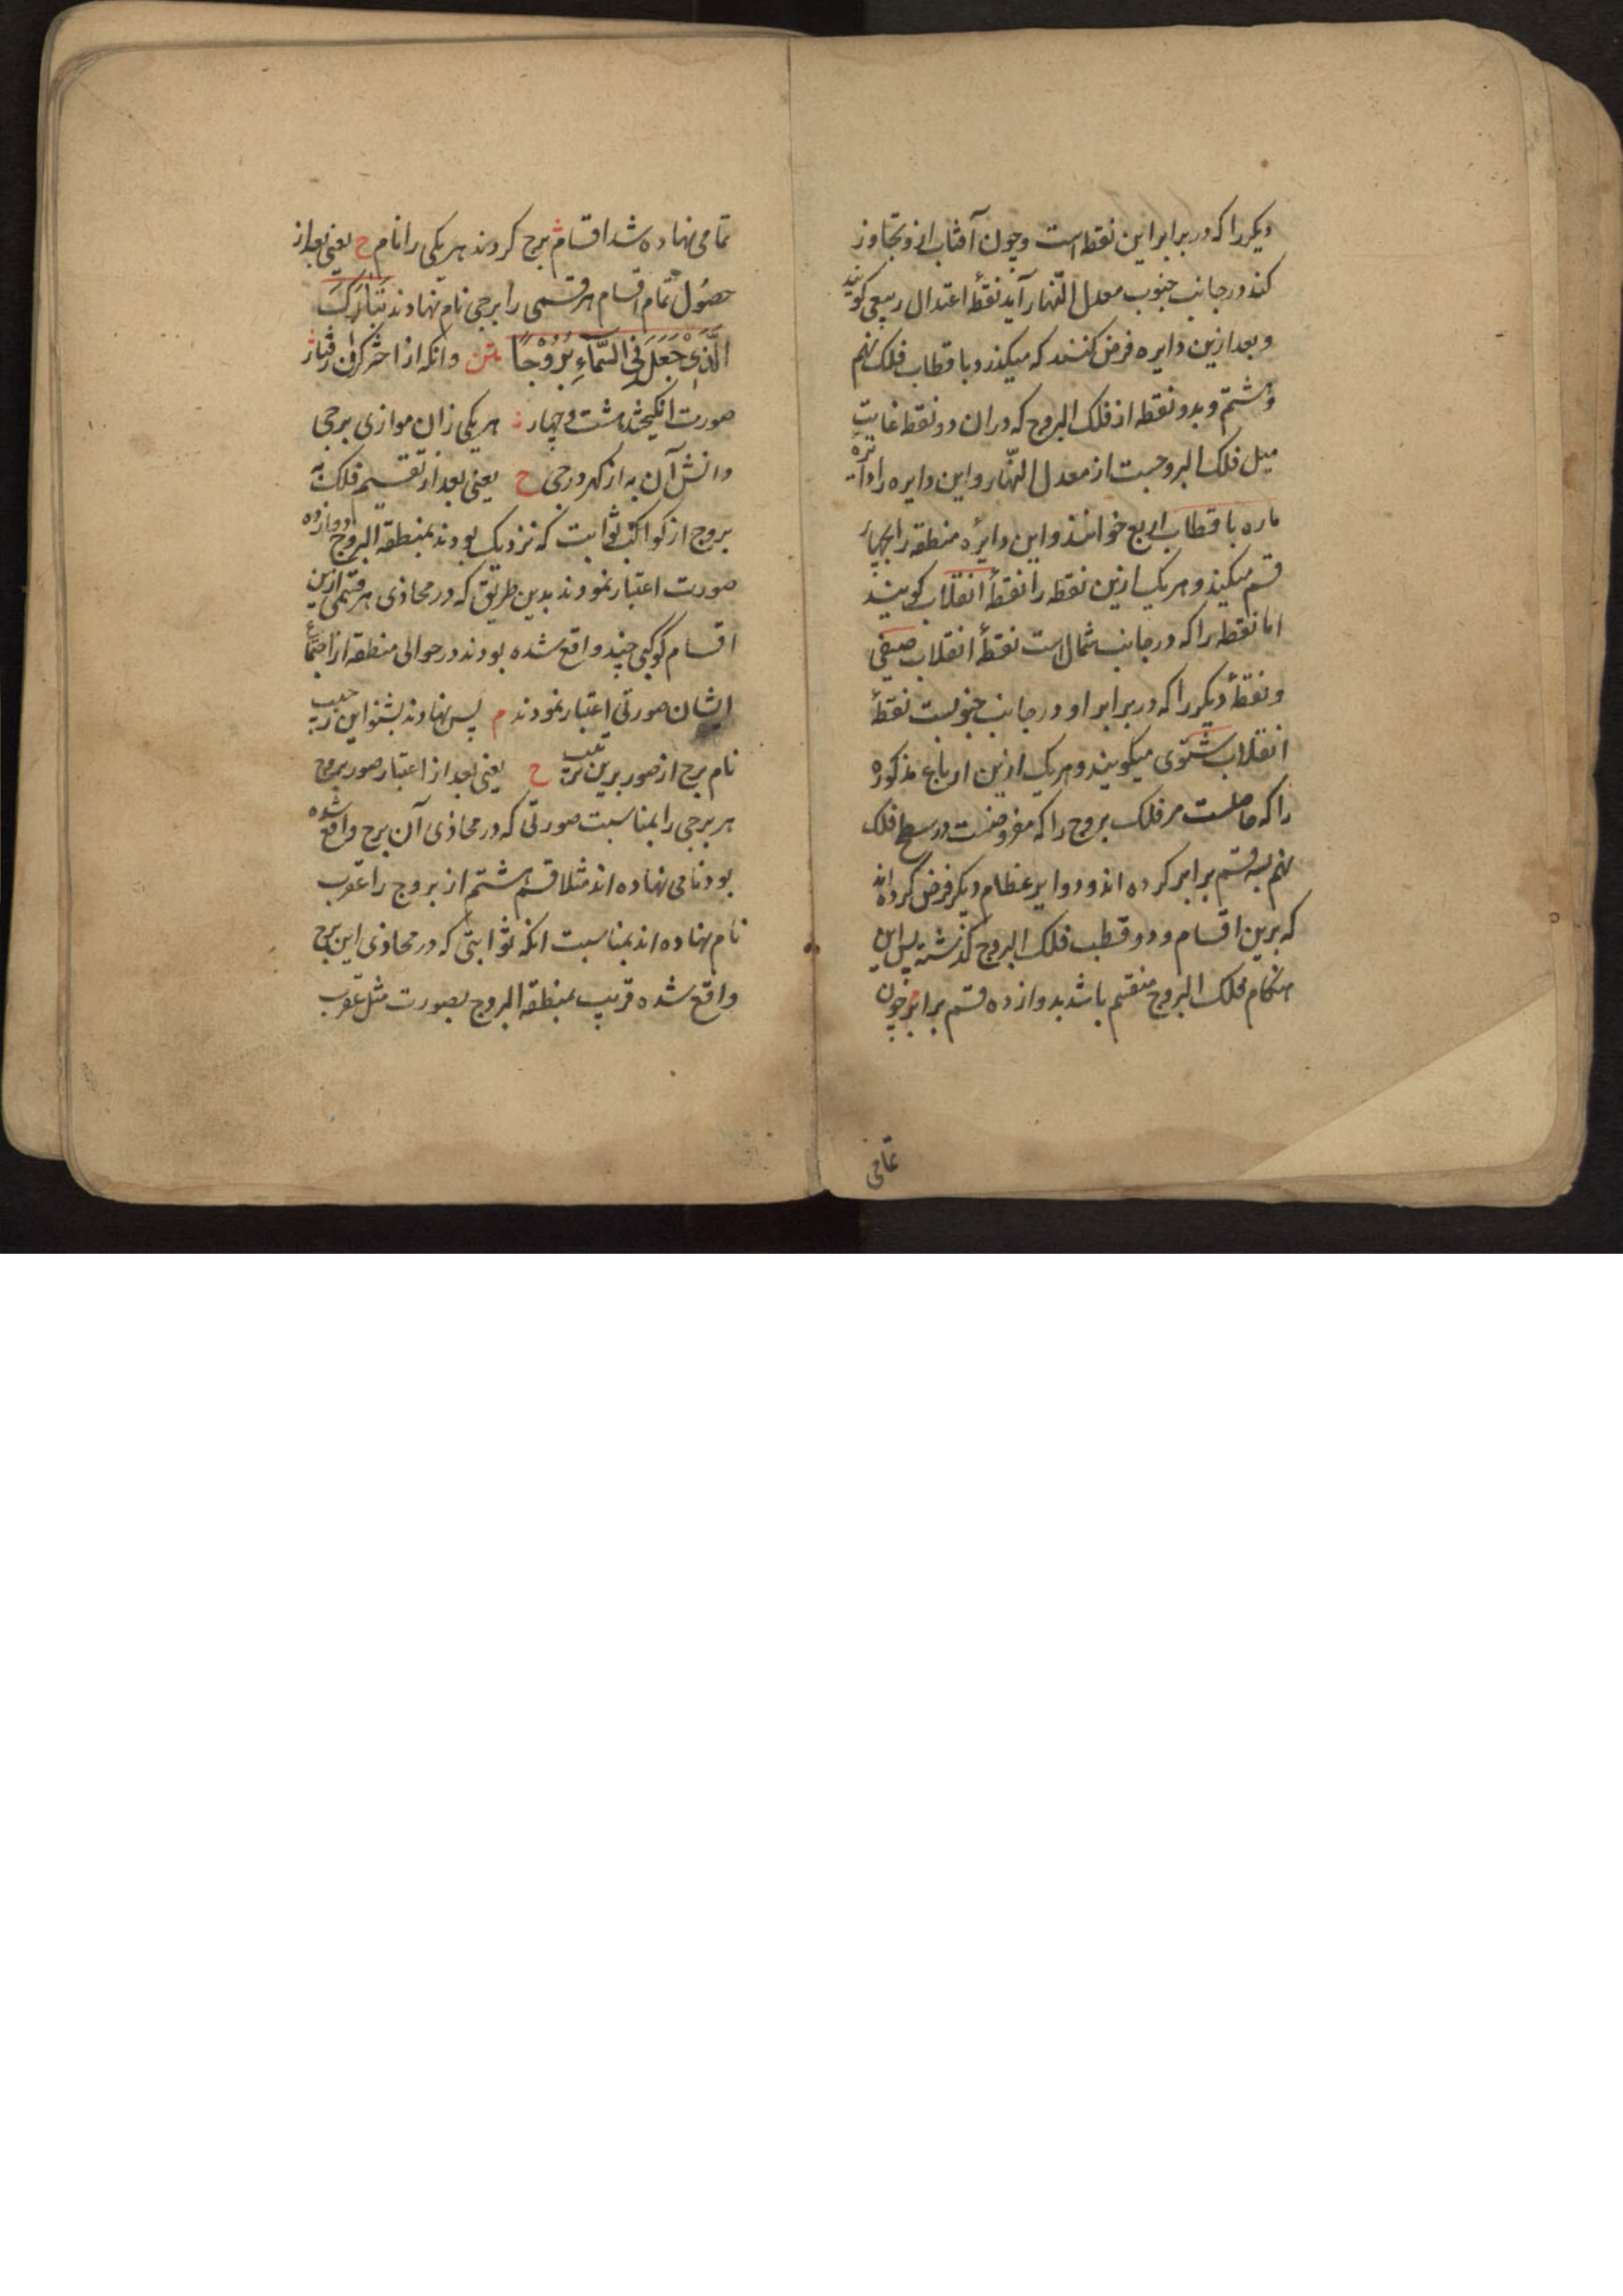 دیکر را که در برابر این نقطه است و چون آفتاب ازو تجاوز
کند در جانب جنوب معدل النّهار آید نقطهٔ اعتدال ربیعی کویند
و بعد ازین دایره فرض کنند که میکذرد باقطاب فلک نهم
و هشتم و بدو نقطه از فلک البروج که در ان دو نقطه غایت
میل فلک البروجست از معدل النّهار و این دایره را دایرهٔ
ماره باقطاب اربع خوانند و این دایرٔه منطقه را بچهار
قسم میکند و هر یک ازین نقطه را نقطهٔ انقلاب کویند
اما نقطه را که در جانب شمال است نقطهٔ انقلاب صیفی
و نقطهٔ دیکر را که در برابر او در جانب جنوبست نقطهٔ
انقلاب شتوی میکویند و هر یک ازین ارباع مذکوره
را که حاصلست مر فلک بروج را که مفروضست در سطح فلک
نهم بسه قسم برابر کرده اند و دوایر عظام دیکر فرض کرده اند
که برین اقسام و دو قطب فلک البروج کذشته پس این
هنکام فلک البروج منقسم باشد بدوازده قسم برابر م چون
تمامی
تمامی نهاده شد اقسامش برج کردند هر یکی را نام ح یعنی بعد از
حصُول تمام اقسام هر قسمی را برجی نام نهادند تَبَارَکَ
الَّذِیْ جَعَلَ فِی السَّمَاءِ بُرُوْجًا متن وانکه از اختر کران رفتار
صورت انکیختند هشت و چهار هر یکی زان موازی برجی
دانش آن به از کهر درجی ح یعنی بعد از تقسیم فلک به
بروج از کواکب ثوابت که نزدیک بودند بمنطقه البروج دوازده
صورت اعتبار نمودند بدین طریق که در محاذی هر قسمی ازین
اقسام کوکبی چند واقع شده بودند در حوالی منطقه از اجتماع
ایشان صورتی اعتبار نمودند م پس نهادند بشنو این ز حبیب
نام برج از صور برین ترتیب ح یعنی بعد از اعتبار صور بروج
هر برجی را بمناسبت صورتی که در محاذی آن برج واقع شده
بود نامی نهاده اند مثلا قسم هشتم از بروج را عقرب
نام نهاده اند بمناسبت انکه ثوابتی که در محاذی این برج
واقع شده قریب بمنطقه البروج بصورت مثل عقرب